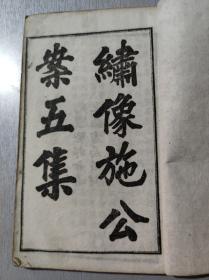 繡像施公
案五集